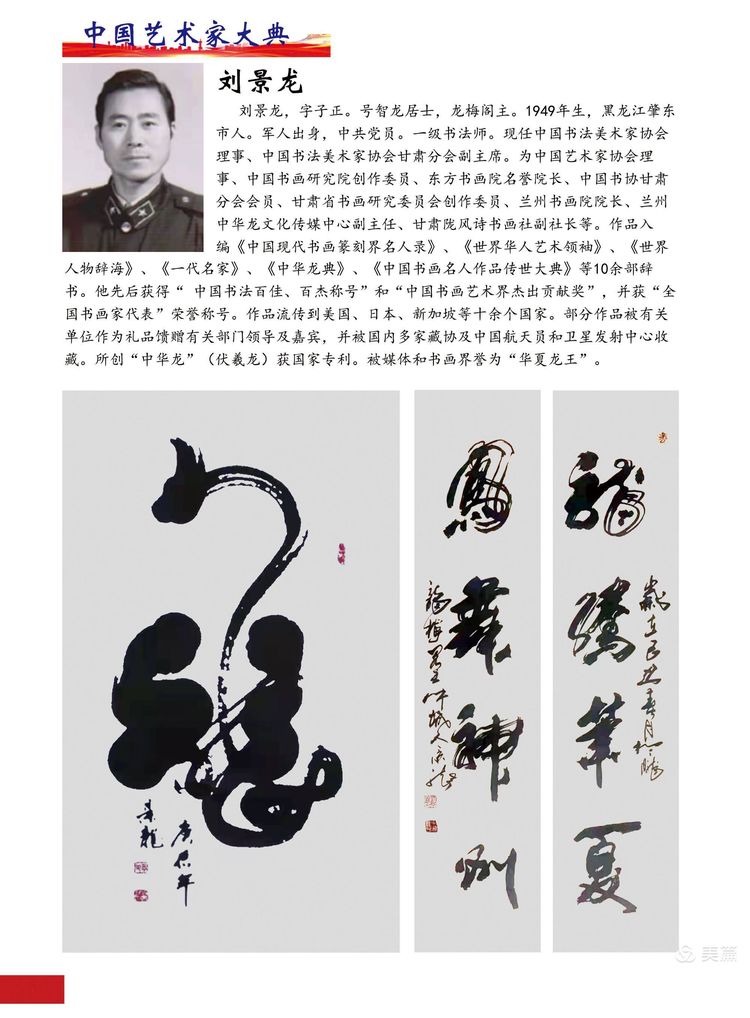 中国艺术家大典
刘景龙
刘景龙，字子正。号智龙居士，龙梅阁主。1949年生，黑龙江肇东
市人。军人出身，中共党员。一级书法师。现任中国书法美术家协会
理事、中国书法美术家协会甘肃分会副主席。为中国艺术家协会理
事、中国书画研究院创作委员、东方书画院名誉院长、中国书协甘肃
分会会员、甘肃省书画研究委员会创作委员、兰州书画院院长、兰州
中华龙文化传媒中心副主任、甘肃陇风诗书画社副社长等。作品入
编《中国现代书画篆刻界名人录》、《世界华人艺术领袖》、《世界
人物辞海》、《一代名家》、《中华龙典》、《中国书画名人作品传世大典》等10余部辞
书。他先后获得“ 中国书法百佳、百杰称号”和“中国书画艺术界杰出贡献奖”，并获“全
国书画家代表”荣誉称号。作品流传到美国、日本、新加坡等十余个国家。部分作品被有关
单位作为礼品馈赠有关部门领导及嘉宾，并被国内多家藏协及中国航天员和卫星发射中心收
藏。所创“中华龙”（伏羲龙）获国家专利。被媒体和书画界誉为“华夏龙王”。
龍騰華夏
鳳舞神州
景龍
美篇